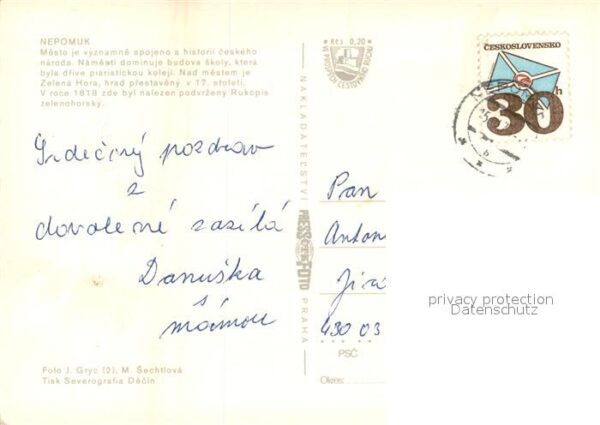 NEPOMUK
Město je významně spojeno s historií českého
národa. Náměstí dominuje budova školy, která
byla dříve piaristickou kolejí. Nad městem je
Zelená Hora, hrad přestavěný v 17. století.
V roce 1818 zde byl nalezen podvržený Rukopis
zelenohorský.
Srdečný pozdrav
z
dovolené zasílá
Danuška
s
mámou
Foto J. Gryc (2), M. Šechtlová
Tisk Severografia Děčín
Kčs 0,20
VE PROSPĚCH CESTOVNÍHO RUCHU
NAKLADATELSTVÍ
PRESSFOTO
PRAHA
ČESKOSLOVENSKO
30h
Pan
Anton
Jirá
430 03
PSČ
Okres:
privacy protection
Datenschutz